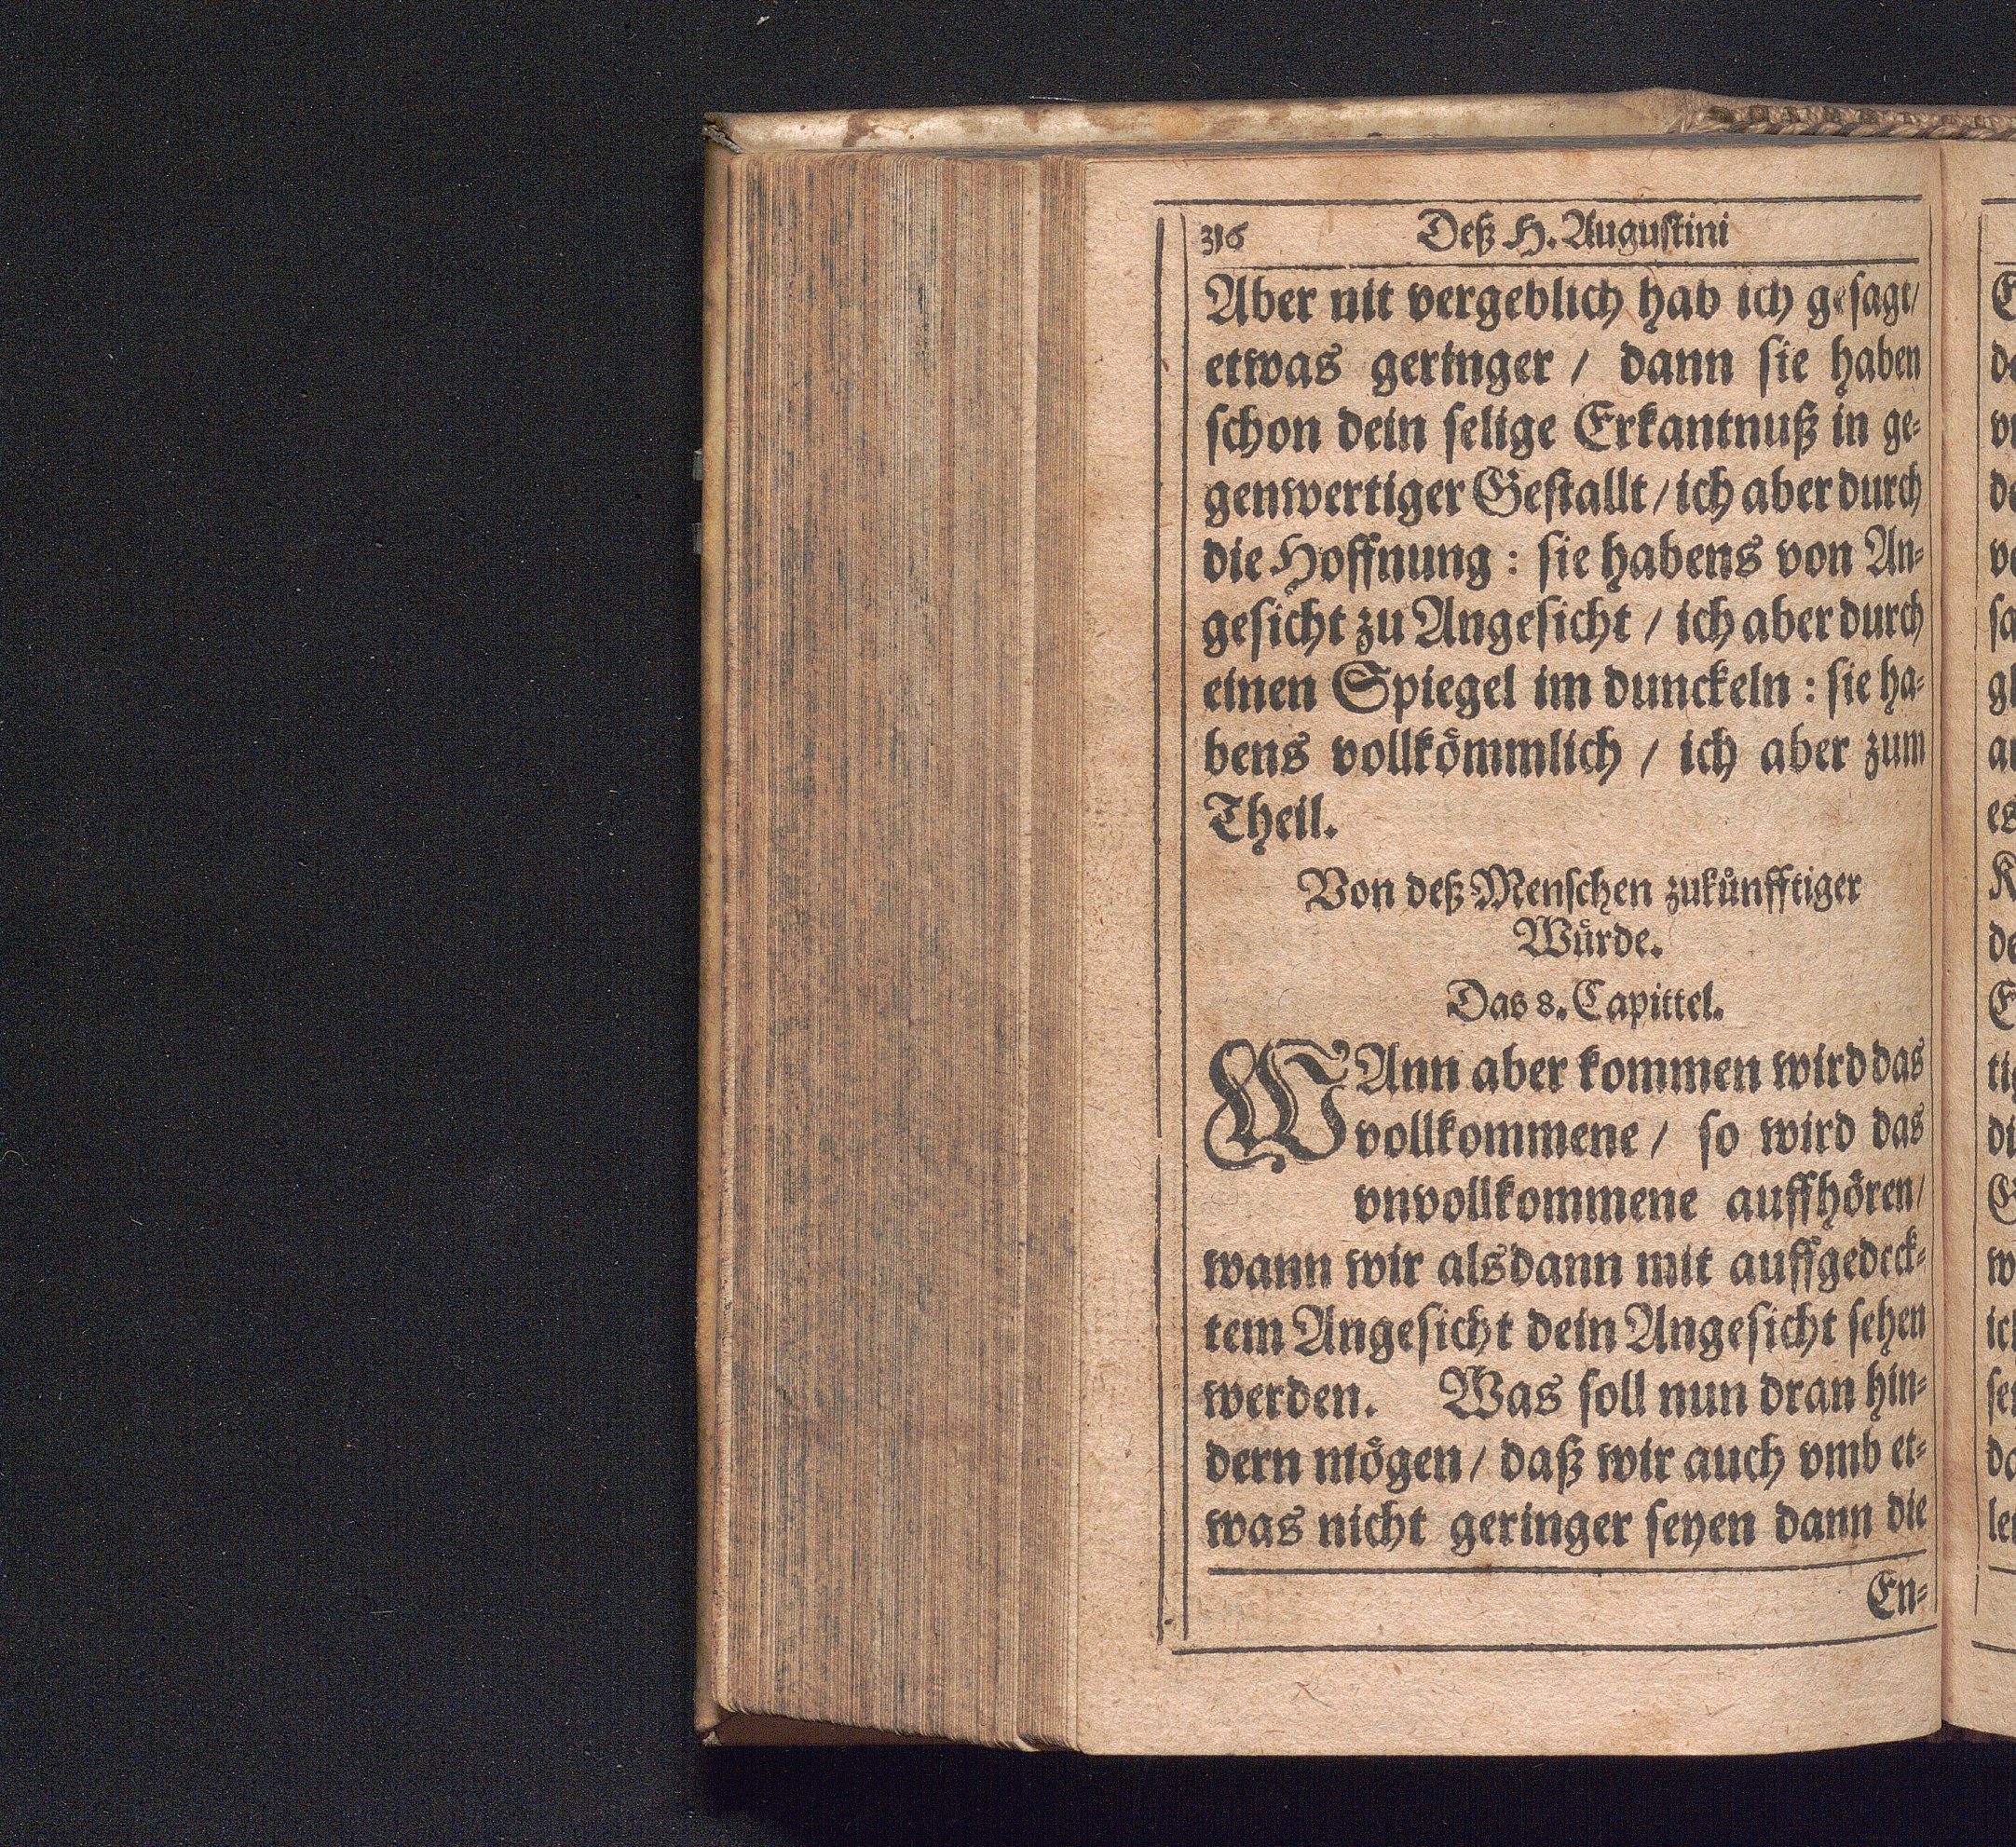 316 Deß H. Augustini
Aber nit vergeblich hab ich gesagt/
etwas geringer / dann sie haben
schon dein selige Erkantnuß in ge-
genwertiger Gestallt / ich aber durch
die Hoffnung : sie habens von An-
gesicht zu Angesicht / ich aber durch
einen Spiegel im dunckeln : sie ha-
bens vollkömmlich / ich aber zum
Theil.
Von deß Menschen zukünfftiger
Würde.
Das 8. Capittel.
WAnn aber kommen wird das
vollkommene / so wird das
vnvollkommene auffhören/
wann wir alsdann mit auffgedeck-
tem Angesicht dein Angesicht sehen
werden. Was soll nun dran hin-
dern mögen / daß wir auch vmb et-
was nicht geringer seyen dann die
En-